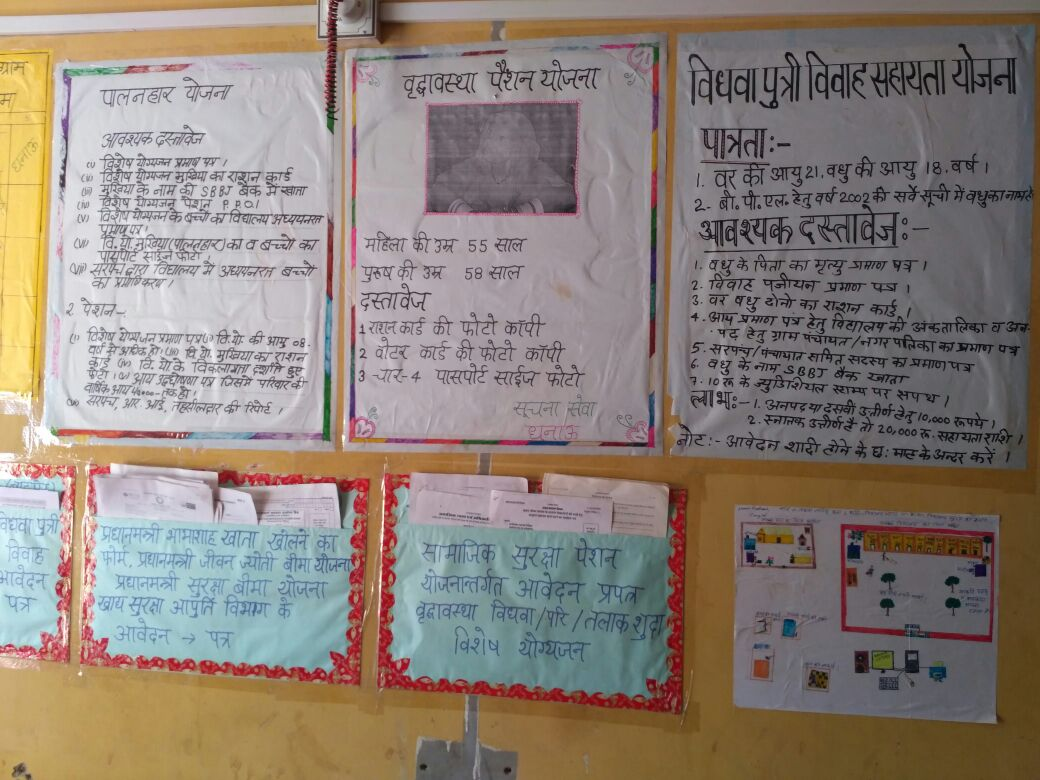 ग्राम
धनाऊ
पालनहार योजना
आवश्यक दस्तावेज
(i) विशेष योग्यजन प्रमाण पत्र ।
(ii) विशेष योग्यजन मुखिया का राशन कार्ड
(iii) मुखिया के नाम की SBBJ बैंक में खाता
(iv) विशेष योग्यजन पेंशन P.P.O.।
(v) विशेष योग्यजन के बच्चों का विद्यालय अध्ययनरत
प्रमाण पत्र ।
(vi) वि.यो. मुखिया (पालनहार) का व बच्चों का
पासपोर्ट साईज फोटो ।
(vii) सरपंच द्वारा विद्यालय में अध्ययनरत बच्चो
का प्रमाणिकरण ।
2 पेंशन -
(i) विशेष योग्यजन प्रमाण पत्र (ii) वि.यो. की आयु 08-
वर्ष से अधिक हो । (iii) वि.यो. मुखिया का राशन
कार्ड (iv) वि.यो. के विकलांगता दर्शाते हुए
फोटो । (v) आय उद्घोषणा पत्र जिसमें परिवार की
वार्षिक आय तक हो ।
सरपंच, आर. आई, तहसीलदार की रिपोर्ट ।
वृद्धावस्था पेंशन योजना
महिला की उम्र 55 साल
पुरुष की उम्र 58 साल
दस्तावेज
1 राशन कार्ड की फोटो कॉपी
2 वोटर कार्ड की फोटो कॉपी
3 चार-4 पासपोर्ट साईज फोटो
सूचना सेवा
धनाऊ
विधवा पुत्री विवाह सहायता योजना
पात्रता :-
1. वर की आयु 21, वधु की आयु 18. वर्ष ।
2. बी. पी. एल. हेतु वर्ष 2002 की सर्वे सूची में वधु का नाम हो
आवश्यक दस्तावेज :-
1. वधु के पिता का मृत्यु प्रमाण पत्र ।
2. विवाह पंजीयन प्रमाण पत्र ।
3. वर वधु दोनो का राशन कार्ड ।
4. आय प्रमाण पत्र हेतु विद्यालय की अंकतालिका व अन-
पढ़ हेतु ग्राम पंचायत / नगर पालिका का प्रमाण पत्र
5. सरपंच / पंचायत समिति सदस्य का प्रमाण पत्र
6. वधु के नाम SBBJ बैंक खाता
7. 10 रू के ज्युडिशियल स्टाम्प पर सपथ ।
लाभ :- 1. अनपढ़ या दसवी उत्तीर्ण हेतु 10,000 रूपये ।
2. स्नातक उत्तीर्ण है तो 20,000 रू. सहायता राशि ।
नोट :- आवेदन शादी होने के छः माह के अन्दर करें ।
विधवा पुत्री
विवाह
आवेदन
पत्र
प्रधानमन्त्री भामाशाह खाता खोलने का
फोर्म, प्रधानमन्त्री जीवन ज्योती बीमा योजना
प्रधानमन्त्री सुरक्षा बीमा योजना
खाद्य सुरक्षा आपुर्ति विभाग के
आवेदन → पत्र
सामाजिक सुरक्षा पेंशन
योजनान्तर्गत आवेदन प्रपत्र
वृद्धावस्था विधवा / परि / तलाक शुदा
विशेष योग्यजन